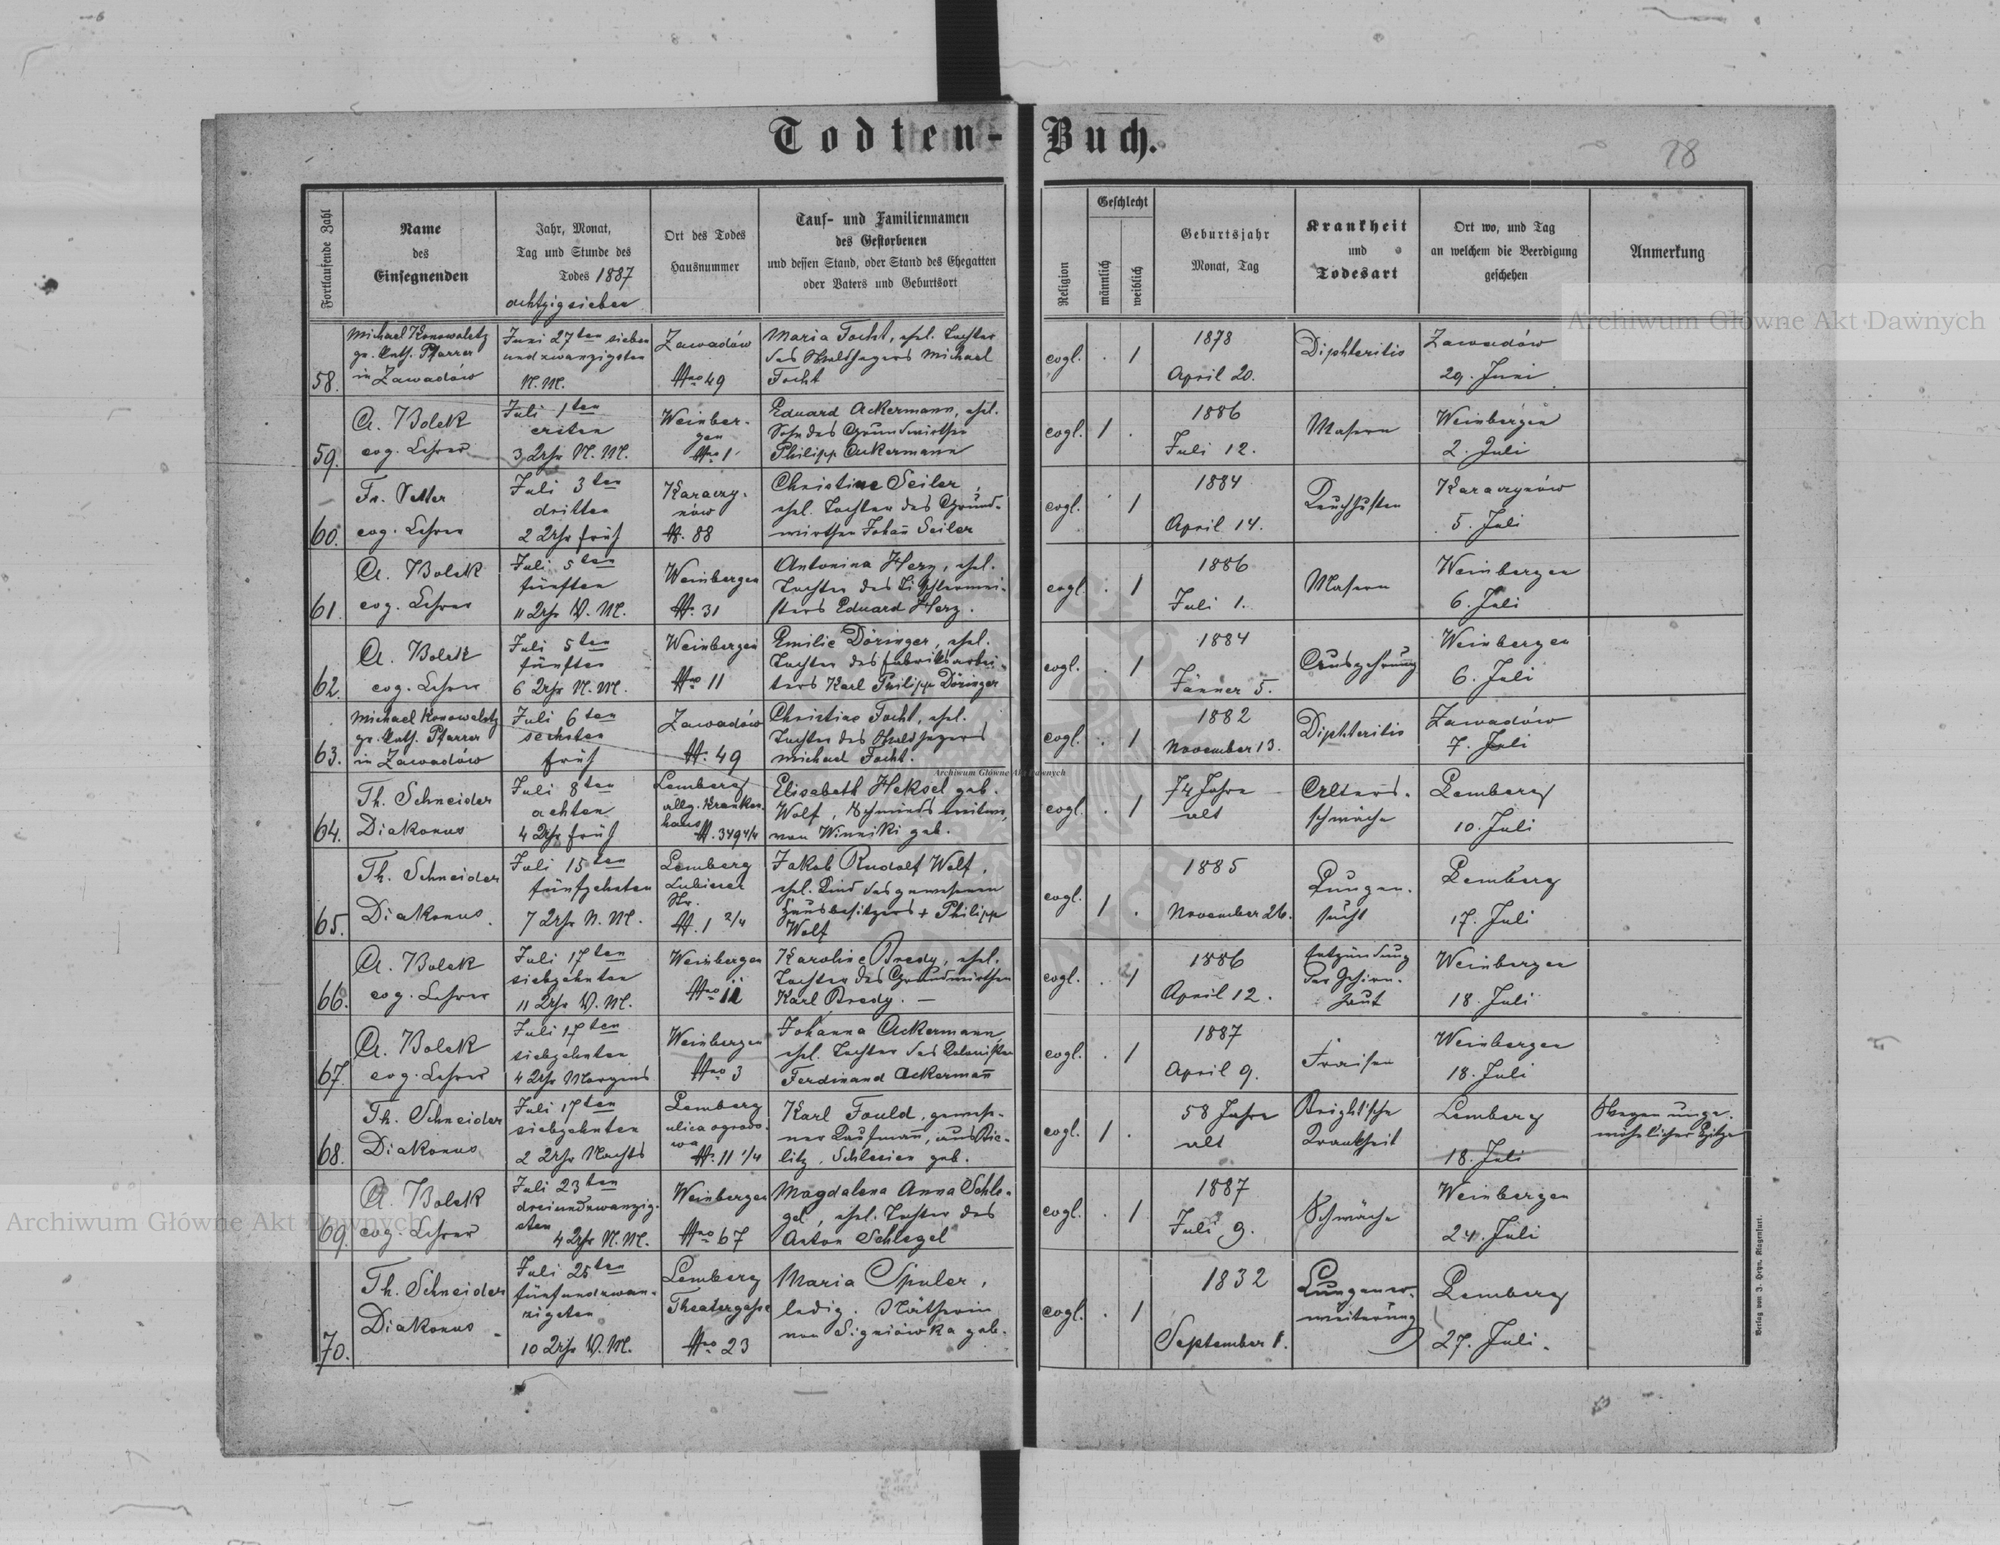 Todten-Buch.
28
Fortlaufende Zahl
Name
des
Einsegnenden
Jahr, Monat,
Tag und Stunde des
Todes 1887
achtzigsieben
Ort des Todes
Hausnummer
Tauf- und Familiennamen
des Gestorbenen
und dessen Stand, oder Stand des Ehegatten
oder Vaters und Geburtsort
Religion
Geschlecht
männlich
weiblich
Geburtsjahr
Monat, Tag
Krankheit
und
Todesart
Ort wo, und Tag
an welchem die Beerdigung
geschehen
Anmerkung
58.
Michael Konowaletz
gr. kath. Pfarrer
in Zawadów
Juni 27ten sieben
und zwanzigsten
N. M.
Zawadów
Nro 49
Maria Focht, ehel. Tochter
des Waldhegers Michael
Focht
evgl. . 1
1878
April 20.
Diphteritis
Zawadów
29. Juni
59.
A. Bolek
evg. Lehrer
Juli 1ten
ersten
3 Uhr N. M.
Weinber-
gen
Nro 1
Eduard Ackermann, ehel.
Sohn des Grundwirthen
Philipp Ackermann
evgl. 1 .
1886
Juli 12.
Masern
Weinbergen
2. Juli
60.
Fr. Vetter
evg. Lehrer
Juli 3ten
dritten
2 Uhr früh
Karaczy-
nów
N. 88
Christine Seiler,
ehel. Tochter des Grund-
wirthen Johañ Seiler
evgl. 1
1884
April 14.
Keuchhusten
Karaczynów
5. Juli
61.
A. Bolek
evg. Lehrer
Juli 5ten
fünften
11 Uhr V. M.
Weinbergen
N. 31
Antonina Herz, ehel.
Tochter des Tischlermei-
sters Eduard Herz.
evgl. . 1
1886
Juli 1.
Masern
Weinbergen
6. Juli
62.
A. Bolek
evg. Lehrer
Juli 5ten
fünften
6 Uhr N. M.
Weinbergen
Nro 11
Emilie Döringer, ehel.
Tochter des Fabriksarbei-
ters Karl Philipp Döringer
evgl. . 1
1884
Jänner 5.
Auszehrung
Weinbergen
6. Juli
63.
Michael Konowaletz
gr. kath. Pfarrer
in Zawadów
Juli 6ten
sechsten
früh
Zawadów
N. 49
Christine Focht, ehel.
Tochter des Waldhegers
Michael Focht.
evgl. . 1
1882
November 13.
Diphteritis
Zawadów
7. Juli
64.
Th. Schneider
Diakonus
Juli 8ten
achten
4 Uhr früh
Lemberg
allg. Kranken-
haus N. 349 4/4
Elisabeth Heksel geb.
Wolf, Schmiedswitwe,
von Winniki geb.
evgl. . 1
74 Jahre
alt
Alters-
schwäche
Lemberg
10. Juli
65.
Th. Schneider
Diakonus.
Juli 15ten
fünfzehnten
7 Uhr N. M.
Lemberg
Str.
N. 1 2/4
Jakob Rudolf Wolf,
ehel. Kind des gewesenen
Hausbesitzers + Philipp
Wolf
evgl. 1 .
1885
November 26.
Lungen-
sucht
Lemberg
17. Juli
66.
A. Bolek
evg. Lehrer
Juli 17ten
siebzehnten
11 Uhr V. M.
Weinbergen
Nro 11
Karoline Bredy, ehel.
Tochter des Grundwirthen
Karl Bredy. —
evgl. . 1
1886
April 12.
Entzündung
der Gehirn-
haut
Weinbergen
18. Juli
67.
A. Bolek
evg. Lehrer
Juli 17ten
siebzehnten
4 Uhr Morgens
Weinbergen
Nro 3
Johanna Ackermann,
ehel. Tochter des Kolonisten
Ferdinand Ackermañ
evgl. . 1
1887
April 9.
Fraisen
Weinbergen
18. Juli
68.
Th. Schneider
Diakonus
Juli 17ten
siebzehnten
2 Uhr Nachts
Lemberg
ulica ogrodo-
wa
N. 11 1/4
Karl Fould, gewese-
ner Kaufmañ, aus Bie-
litz, Schlesien geb.
evgl. 1 .
58 Jahre
alt
Brightische
Krankheit
Lemberg
18. Juli
Wegen unge-
wöhnlicher Hitze
69.
A. Bolek
evg. Lehrer
Juli 23ten
dreiundzwanzig-
sten
4 Uhr N. M.
Weinbergen
Nro 67
Magdalena Anna Schle-
gel, ehel. Tochter des
Anton Schlegel
evgl. . 1
1887
Juli 9.
Schwäche
Weinbergen
24. Juli
70.
Th. Schneider
Diakonus.
Juli 25ten
fünfundzwan-
zigsten
10 Uhr V. M.
Lemberg
Theatergasse
Nro 23
Maria Spuler,
ledig. Nätherin
von Sigmówka geb.
evgl. . 1
1832
September 1.
Lungener-
weiterung
Lemberg
27. Juli.
Verlag von J. Heyn, Klagenfurt.
Archiwum Główne Akt Dawnych
Archiwum Główne Akt Dawnych
Archiwum Główne Akt Dawnych